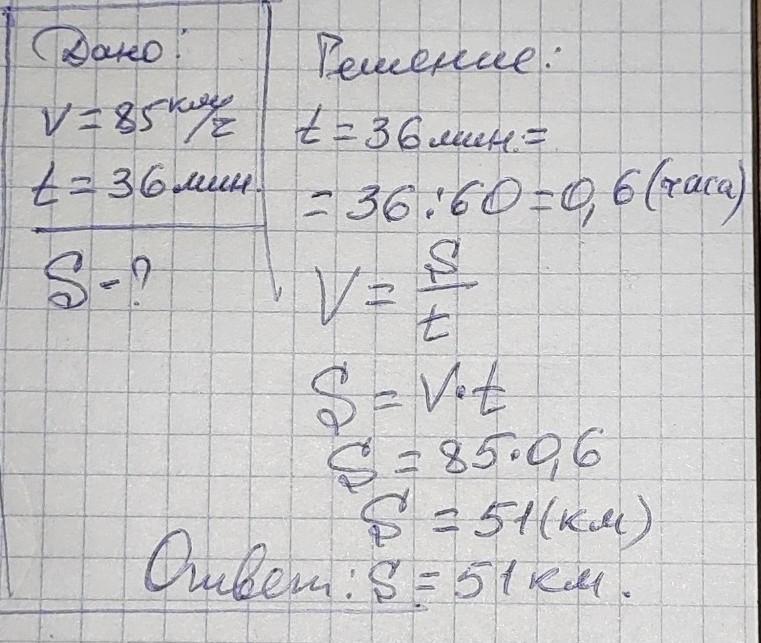 Дано:
v = 85 км/ч
t = 36 мин.
S - ?
Решение:
t = 36 мин. =
= 36 : 60 = 0,6 (часа)
V = S/t
S = V · t
S = 85 · 0,6
S = 51 (км)
Ответ: S = 51 км.